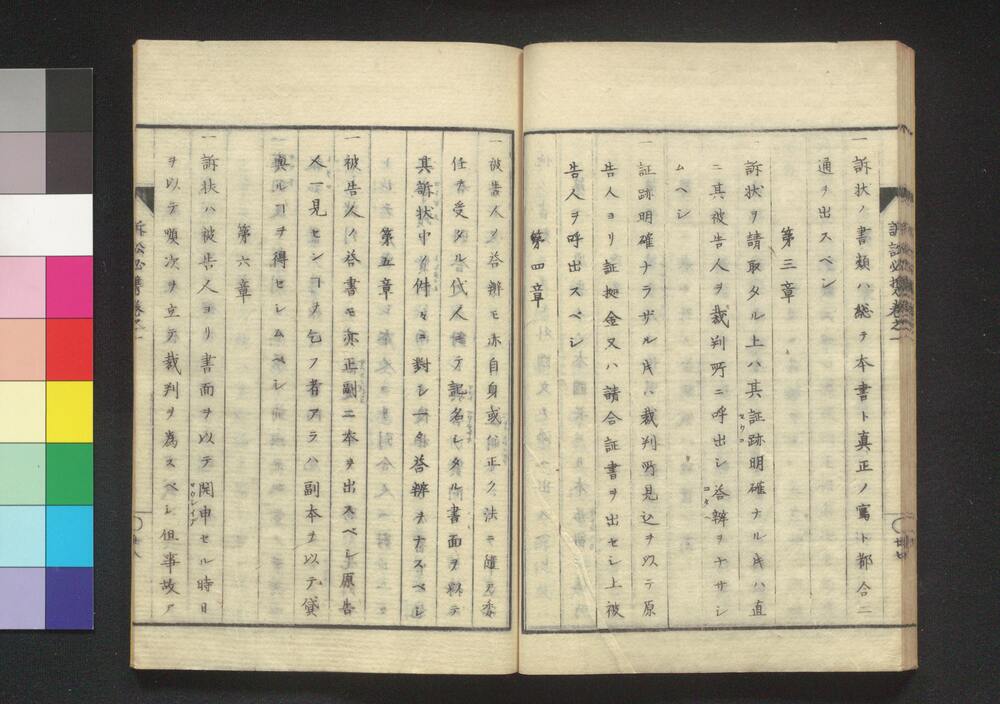 一 訴状ノ書類ハ総テ本書ト真正ノ寫ト都合二
通ヲ出スベシ
第三章
一 訴状ヲ請取タル上ハ其証跡明確ナル𪜈ハ直
ニ其被告人ヲ裁判所ニ呼出シ荅辨ヲナサシ
ムヘシ
一 証跡明確ナラザル𪜈ハ裁判所見込ヲ以テ原
告人ヨリ証拠金又ハ請合証書ヲ出セシ上被
告人ヲ呼出スベシ
第四章
訴訟必携巻之一
一 被告人ノ荅辨モ亦自身或ハ正ク法ニ隨ヒ委
任ヲ受タル代人ニテ記名シタル書面ヲ以テ
其訴状中ノ件々ニ對シ荅辨ヲナスベシ
第五章
一 被告人ノ荅書モ亦正副二本ヲ出スベシ原告
人一見センヿヲ乞フ者アラハ副本ヲ以テ貸
與ルヿヲ得セシムベシ
第六章
一 訴状ハ被告人ヨリ書面ヲ以テ開申セル時日
ヲ以テ順次ヲ立テ裁判ヲ為スベシ但事故ア
訴訟必携巻之一